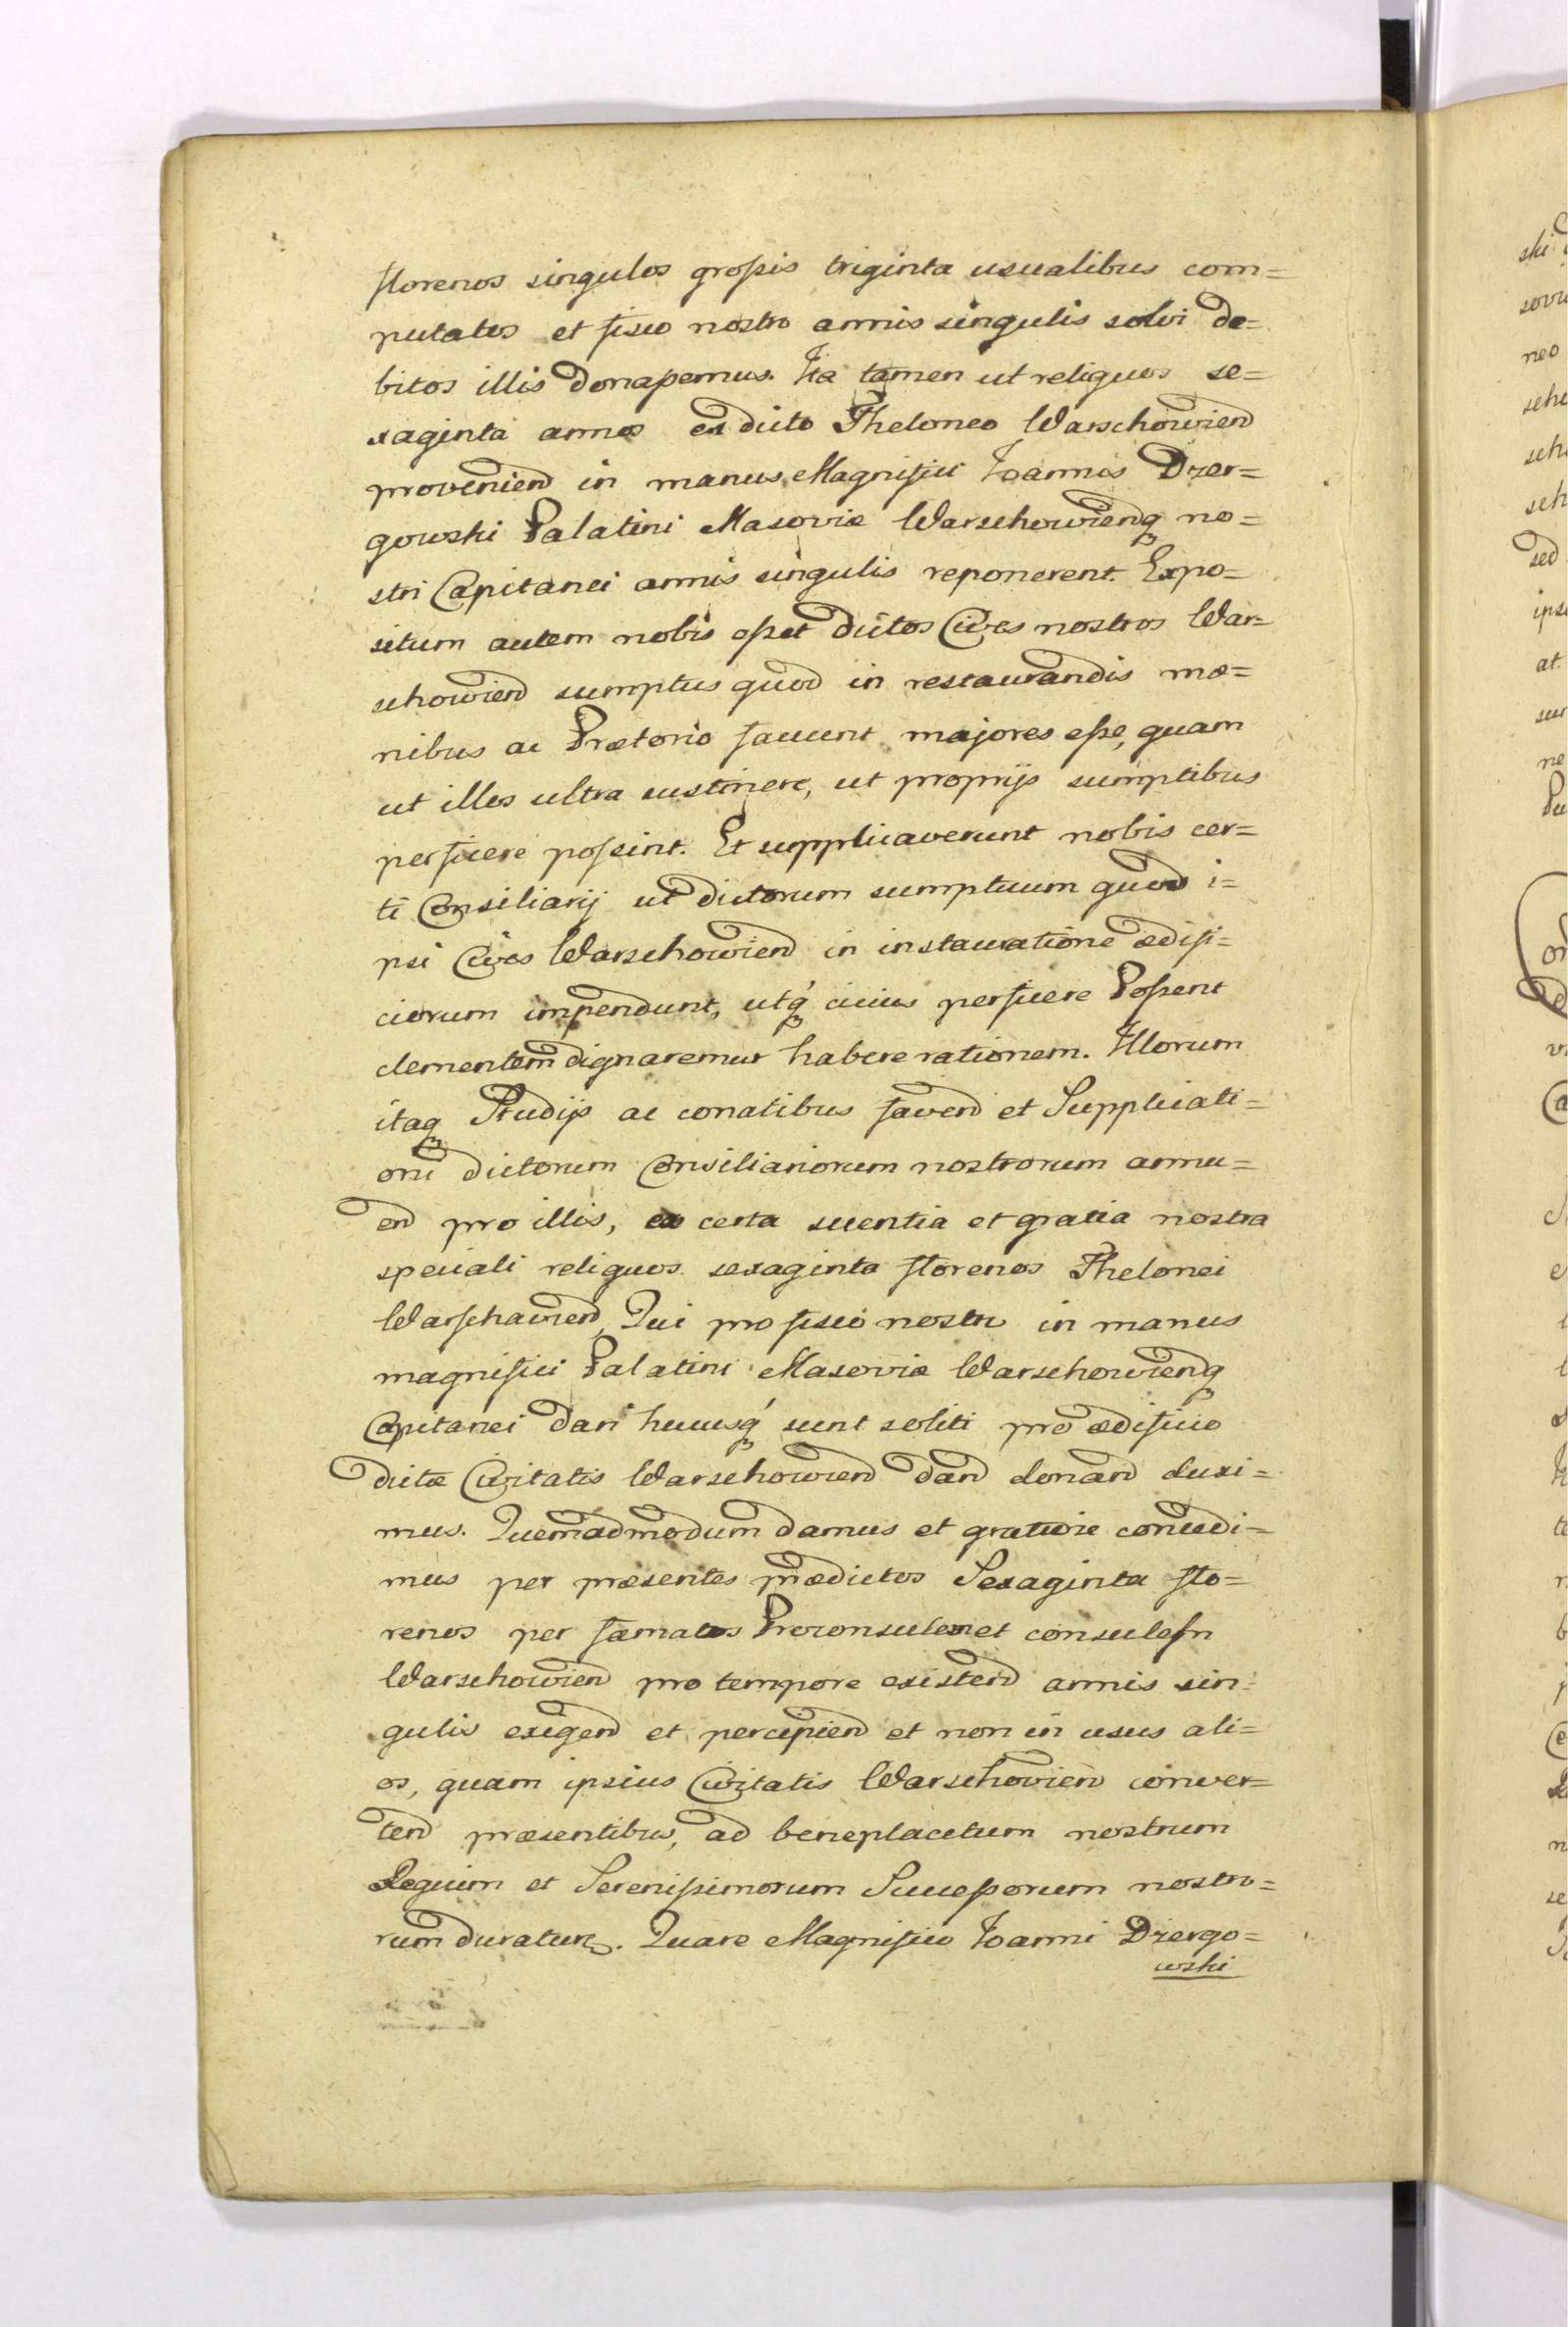 florenos singulos grossis triginta usualibus com=
putatos et fisco nostro annis singulis solvi de=
bitos illis donassemus. Ita tamen ut reliquos se=
xaginta annos ex dicto Theloneo Warschowien
provenien in manus Magnifici Joannis Dzer=
gowski Palatini Masoviæ Warschowienq no=
stri Capitanei annis singulis reponerent. Expo=
situm autem nobis esset dictos Cives nostros War=
schowien sumptus quod in restaurandis mœ=
nibus ac Prætorio faciunt majores esse, quam
ut illos ultra sustinere, ut proprijs sumptibus
perficere possint. Et supplicaverunt nobis cer=
ti Consiliarij ut dictorum sumptuum quod i=
psi Cives Warschowien in instauratione ædifi=
ciorum impendunt, utq́ cicius perficere Possent
clementem dignaremur habere rationem. Illorum
itaq Studijs ac conatibus faven et Supplicati=
oni dictorum Consiliariorum nostrorum annu=
en pro illis, ex certa scientia et gratia nostra
speciali reliquos sexaginta florenos Thelonei
Warschavien, Qui pro fisco nostro in manus
magnifici Palatini Masoviæ Warschowienq
Capitanei dari hucusq́ sunt soliti pro ædificio
dictæ Civitatis Warschowien dan donan duxi=
mus. Quemadmodum damus et gratiose concedi=
mus per præsentes prædictos Sexaginta flo=
renos per famatos Proconsulem et consulesn
Warschowien pro tempore existen annis sin=
gulis exigen et percipien et non in usus ali=
os, quam ipsius Civitatis Warschovien conver=
ten præsentibus, ad beneplacitum nostrum
Regium et Serenissimorum Successorum nostro=
rum duratur. Quare Magnifico Joanni Dzergo=
wski